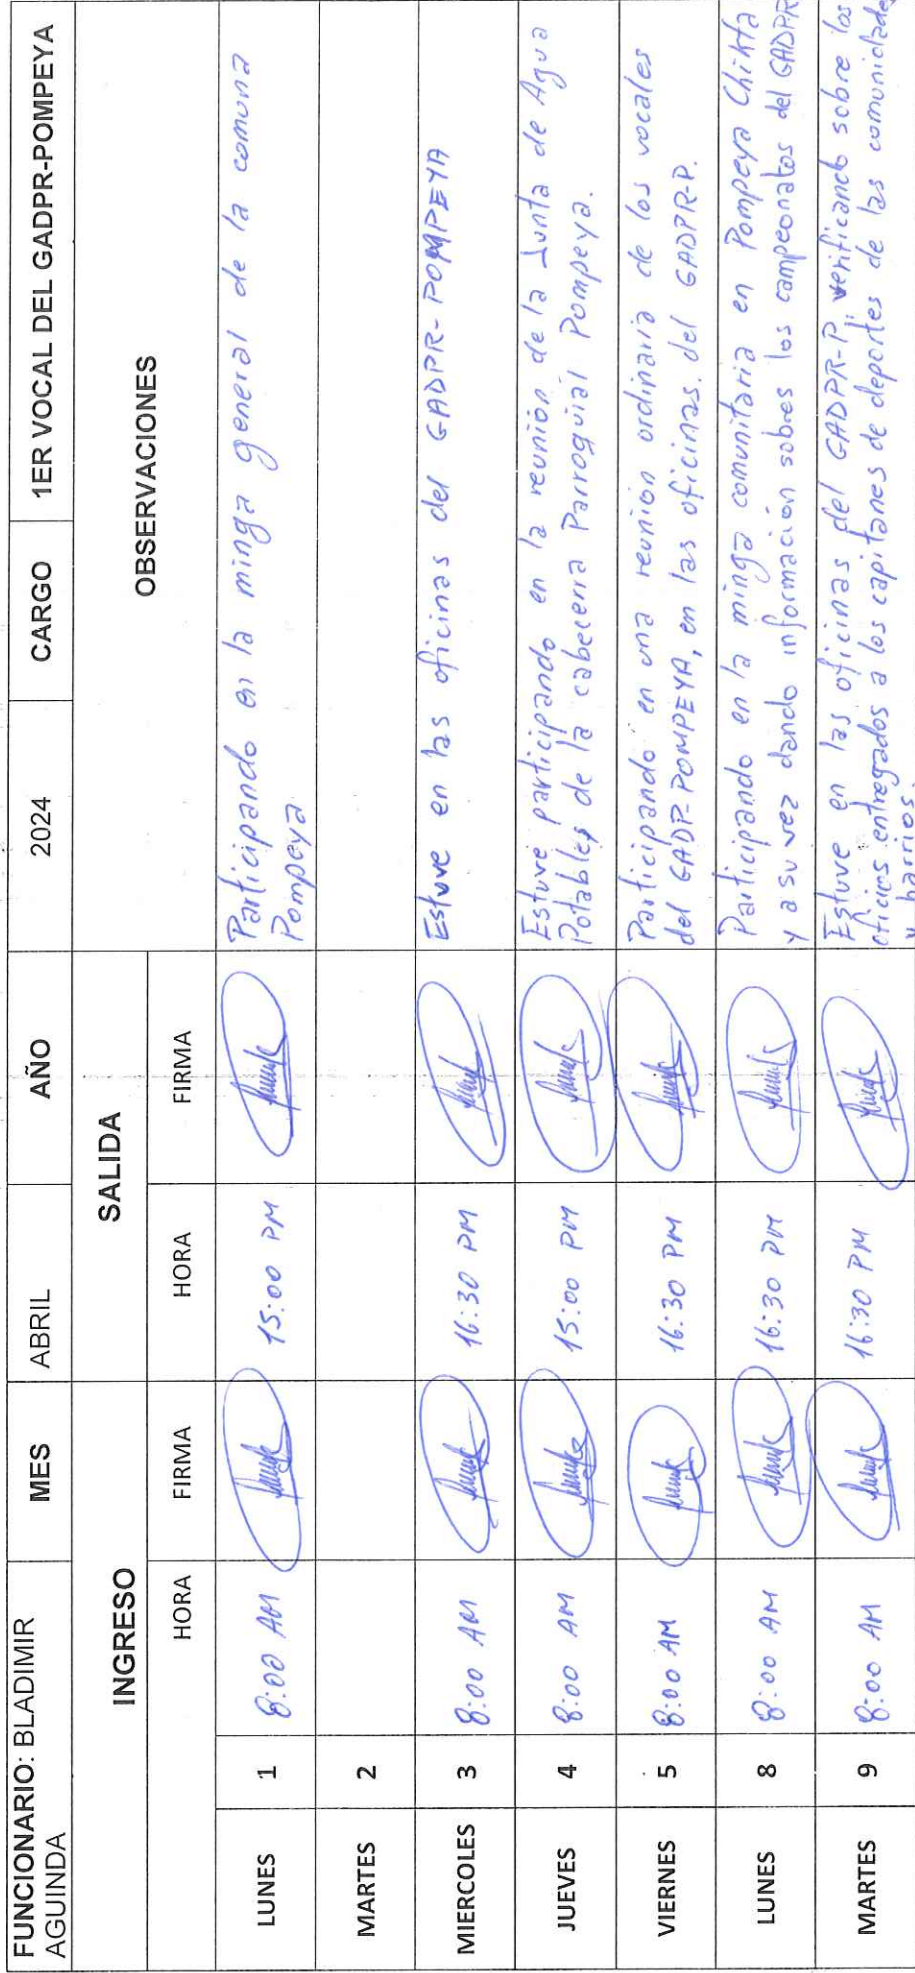 FUNCIONARIO: BLADIMIR AGUINDA MES ABRIL AÑO 2024 CARGO 1ER VOCAL DEL GADPR-POMPEYA
INGRESO SALIDA OBSERVACIONES
HORA FIRMA HORA FIRMA
LUNES 1 8:00 AM 15:00 PM Participando en la minga general de la comuna
Pompeya
MARTES 2
MIERCOLES 3 8:00 AM 16:30 PM Estuve en las oficinas del GADPR-POMPEYA
JUEVES 4 8:00 AM 15:00 PM Estuve participando en la reunión de la Junta de Agua
Potables de la cabecerra Parroquial Pompeya.
VIERNES 5 8:00 AM 16:30 PM Participando en una reunion ordinaria de los vocales
del GADP-POMPEYA, en las oficinas. del GADPR-P.
LUNES 8 8:00 AM 16:30 PM Participando en la minga comunitaria en Pompeya Chikta
y a su vez dando información sobres los campeonatos del GADPR
MARTES 9 8:00 AM 16:30 PM Estuve en las oficinas del GADPR-P; verificando sobre los
oficios entregados a los capitanes de deportes de las comunidades
y barrios.